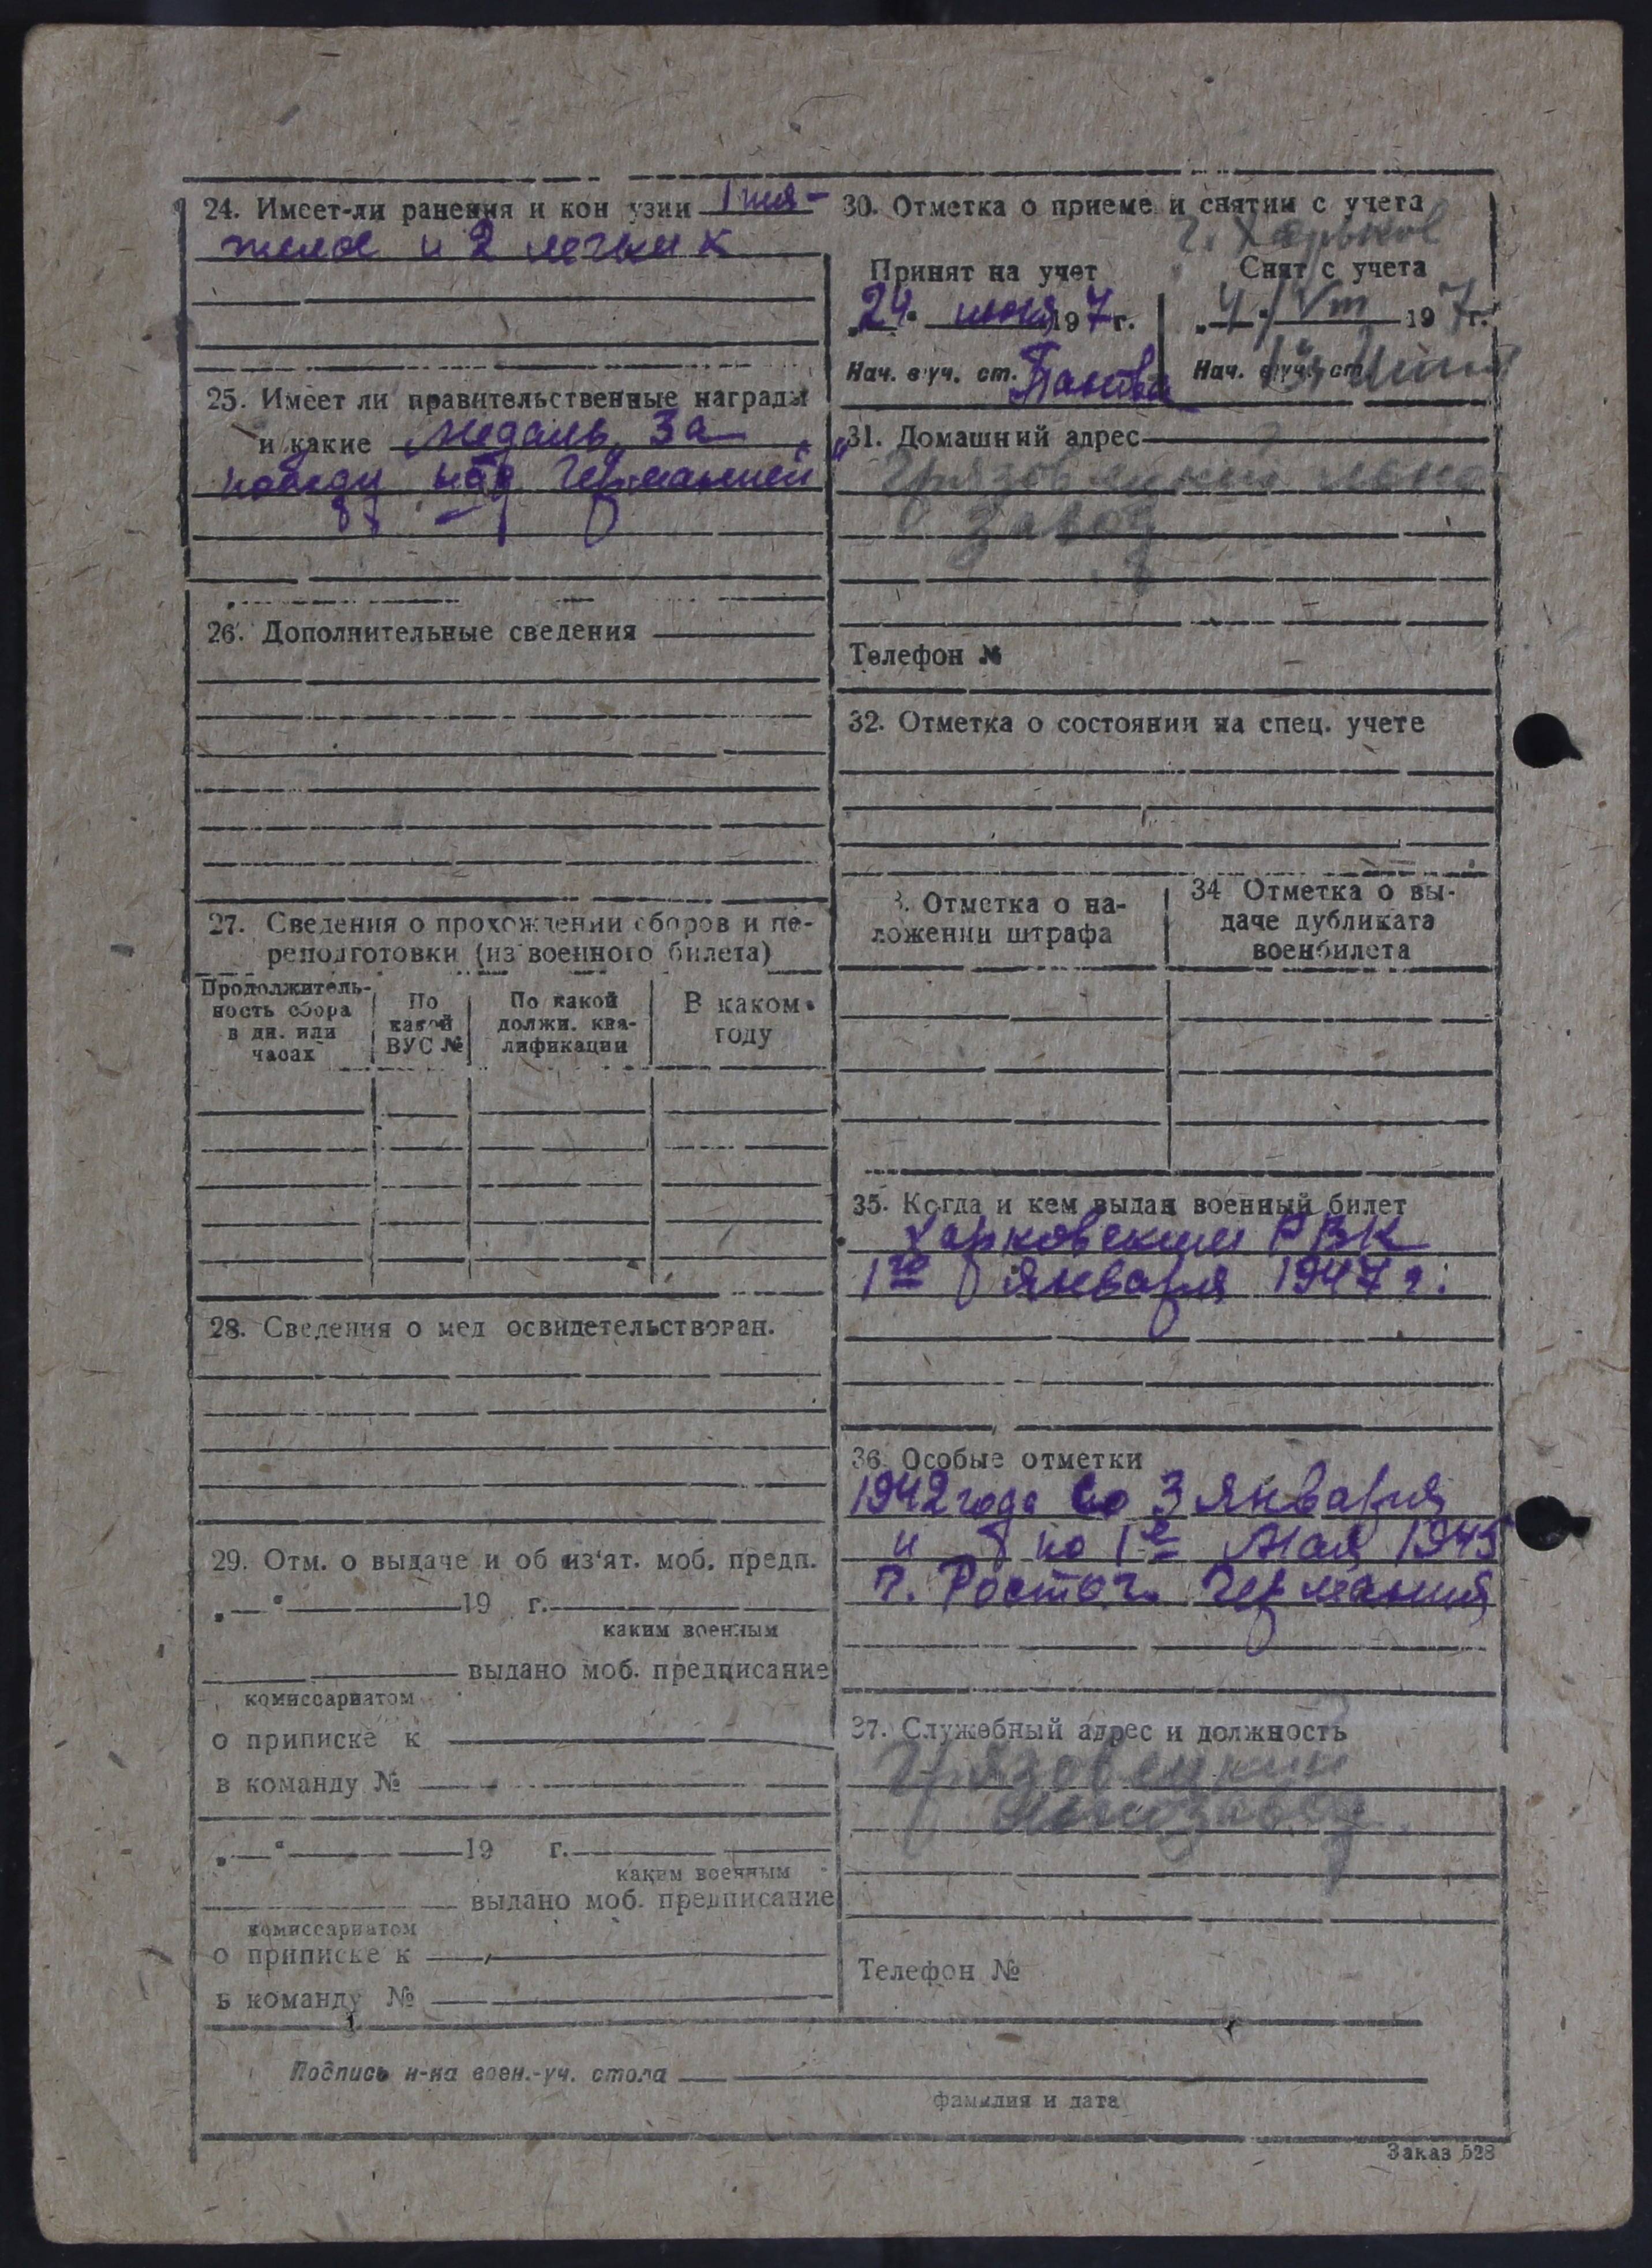 24. Имеет-ли ранения и кон узии 1 тя-
желое и 2 легких
25. Имеет ли правительственные награды
и какие медаль „За
победу над Германией"
26. Дополнительные сведения
27. Сведения о прохождении сборов и пе-
реподготовки (из военного билета)
Продолжитель-
ность сбора
в дн. или
часах
По
какой
ВУС №
По какой
должн. ква-
лификации
В каком
году
28. Сведения о мед освидетельствован.
29. Отм. о выдаче и об из'ят. моб. предп.
„ — " 19 г.
каким военным
выдано моб. предписание
комиссариатом
о приписке к
в команду №
„ — " 19 г.
каким военным
выдано моб. предписание
комиссариатом
о приписке к
в команду №
30. Отметка о приеме и снятии с учета
г. Харьков
Принят на учет
„24" июня 197г.
Нач. в уч. ст. Панова
Снят с учета
„4" VIII 197г.
Нач. в уч. ст.
31. Домашний адрес
Грязовецкий льно
завод
Телефон №
32. Отметка о состоянии на спец. учете
3. Отметка о на-
ложении штрафа
34 Отметка о вы-
даче дубликата
военбилета
35. Когда и кем выдан военный билет
Харковским РВК
1го января 1947 г.
36. Особые отметки
1942 года со 3 января
и по 1е Мая 1945
г. Росток Германия
37. Служебный адрес и должность
Грязовецкий
Льнозавод
Телефон №
Подпись н-ка воен.-уч. стола
фамилия и дата
Заказ 528